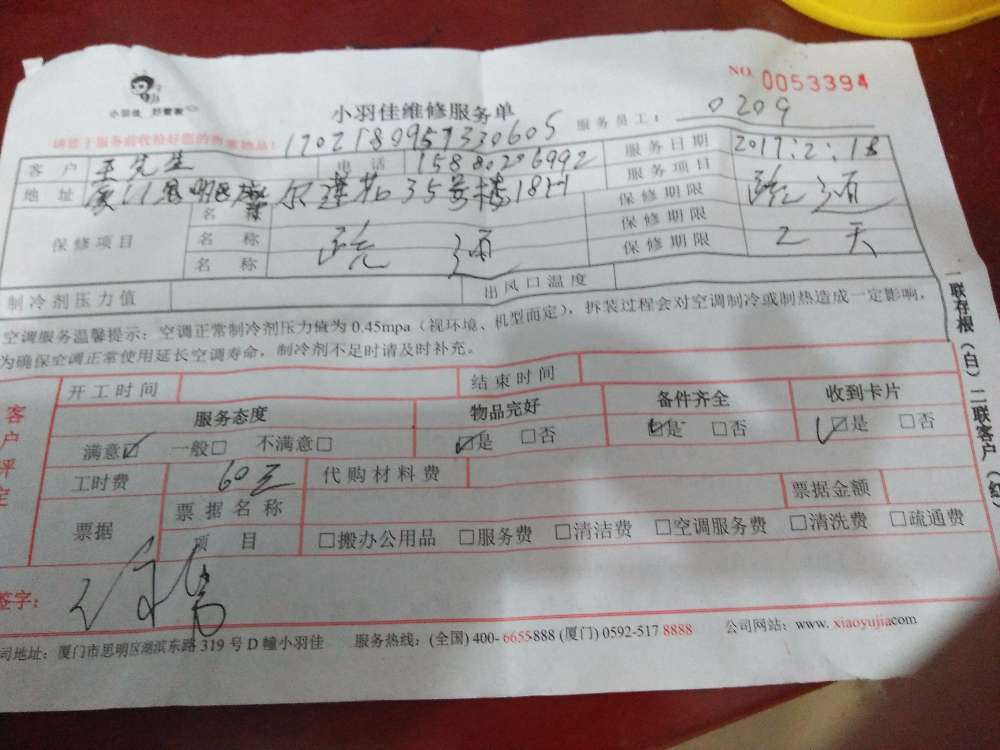 NO 0053394
小羽佳 好管家
小羽佳维修服务单
服务员工： 0209
请您于服务前收拾好您的贵重物品！ 170218095733060S
客户 王先生 电话 15880206992 服务日期 2017.2.18
地址 厦门思明区 尔莲花35号楼18H 服务项目 疏通
保修项目 名称 保修期限
名称 疏通 保修期限 2天
名称 保修期限
制冷剂压力值 出风口温度
空调服务温馨提示：空调正常制冷剂压力值为 0.45mpa（视环境、机型而定），拆装过程会对空调制冷或制热造成一定影响，
为确保空调正常使用延长空调寿命，制冷剂不足时请及时补充。
一联存根（白）二联客户（红）
客户评定
开工时间 结束时间
服务态度 物品完好 备件齐全 收到卡片
满意☑ 一般□ 不满意□ ☑是 □否 ☑是 □否 ☑是 □否
工时费 60元 代购材料费
票据 票据名称 票据金额
项目 □搬办公用品 □服务费 □清洁费 □空调服务费 □清洗费 □疏通费
签字：
司地址：厦门市思明区湖滨东路 319 号 D 幢小羽佳 服务热线：(全国) 400- 6655888 (厦门) 0592-517 8888 公司网站：www. xiaoyujiacom